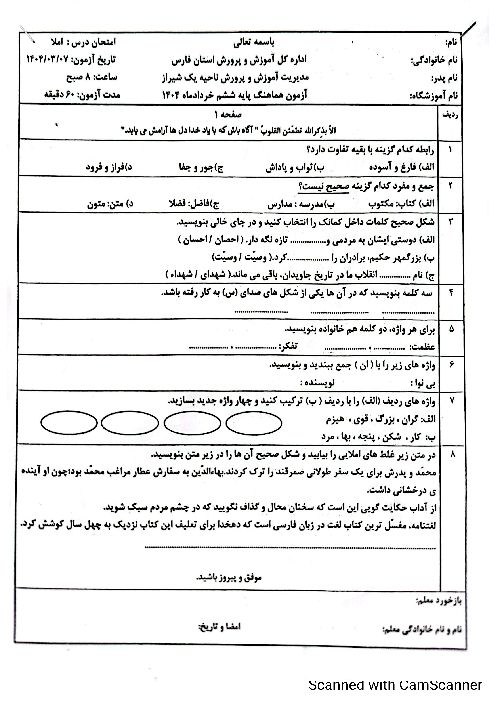 باسمه تعالی
نام:
امتحان درس: املا
نام خانوادگی:
اداره کل آموزش و پرورش استان فارس
تاریخ آزمون: ۱۴۰۴/۰۳/۰۷
نام پدر:
مدیریت آموزش و پرورش ناحیه یک شیراز
ساعت: ۸ صبح
نام آموزشگاه:
آزمون هماهنگ پایه ششم خردادماه ۱۴۰۴
مدت آزمون: ۶۰ دقیقه
ردیف
صفحه ۱
الا بذکرالله تطمئن القلوب " آگاه باش که با یاد خدا دل ها آرامش می یابد."
۱ رابطه کدام گزینه با بقیه تفاوت دارد؟
الف) فارغ و آسوده ب) ثواب و پاداش ج) جور و جفا د) فراز و فرود
۲ جمع و مفرد کدام گزینه صحیح نیست؟
الف) کتاب: مکتوب ب) مدرسه : مدارس ج) فاضل: فضلا د) متن: متون
۳ شکل صحیح کلمات داخل کمانک را انتخاب کنید و در جای خالی بنویسید.
الف) دوستی ایشان به مردمی و............ تازه نگه دار. ( احصان / احسان )
ب) بزرگمهر حکیم، برادران را ..................کرد.( وصیّت / وسیّت)
ج) نام .............. انقلاب ما در تاریخ جاویدان، باقی می ماند.( شهدای / شهداء )
۴ سه کلمه بنویسید که در آن ها یکی از شکل های صدای (س) به کار رفته باشد.
.................... .................... ....................
۵ برای هر واژه، دو کلمه هم خانواده بنویسید.
عظمت: .............. ، .............. تفکر: .............. ، ..............
۶ واژه های زیر را با ( ان ) جمع ببندید و بنویسید.
بی نوا : نویسنده :
۷ واژه های ردیف (الف) را با ردیف ( ب) ترکیب کنید و چهار واژه جدید بسازید.
الف: گران ، بزرگ ، قوی ، هیزم
ب: کار ، شکن ، پنجه ، بها ، مرد
۸ در متن زیر غلط های املایی را بیابید و شکل صحیح آن ها را در زیر متن بنویسید.
محمّد و پدرش برای یک سفر طولانی صمرقند را ترک کردند.بهاءالدّین به سفارش عطار مراغب محمّد بود؛چون او آینده
ی درخشانی داشت.
از آداب حکایت گویی این است که سخنان محال و گذاف نگویید که در چشم مردم سبک شوید.
لغتنامه، مفسّل ترین کتاب لغت در زبان فارسی است که دهخدا برای تعلیف این کتاب نزدیک به چهل سال کوشش کرد.
موفق و پیروز باشید.
بازخورد معلم:
نام و نام خانوادگی معلم: امضا و تاریخ:
Scanned with CamScanner